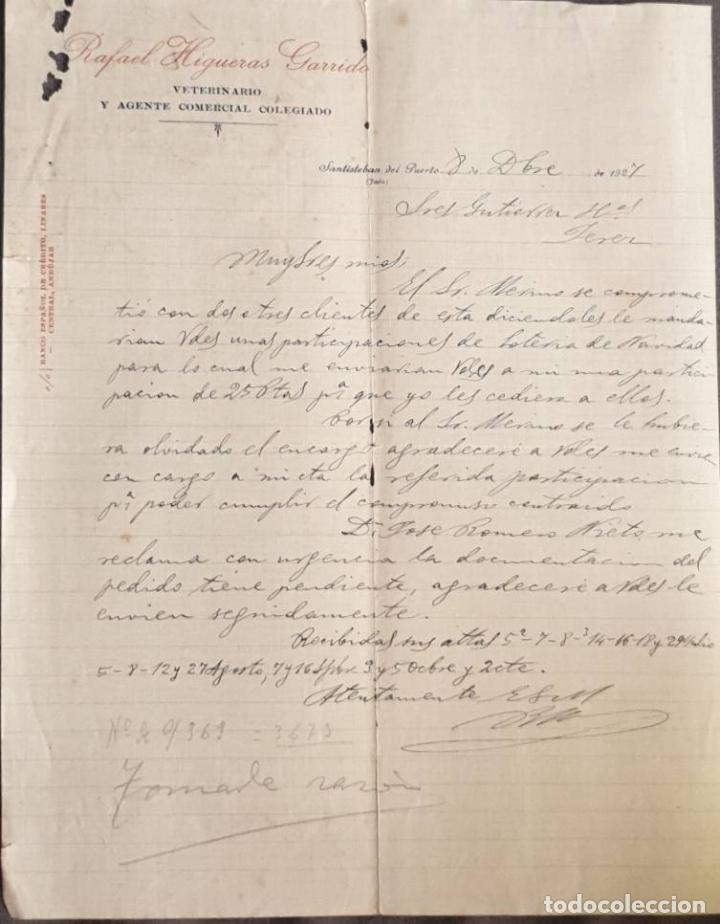 Rafael Higueras Garrido
VETERINARIO
Y AGENTE COMERCIAL COLEGIADO
Santisteban del Puerto 8 de Dbre de 1927
(Jaén)
c/c/ BANCO ESPAÑOL DE CRÉDITO, LINARES
CENTRAL, ANDÚJAR
Sres Gutierrez Hos
Jerez
Muy Sres mios:
El Sr. Merino se comprome-
tió con dos o tres clientes de esta diciendoles le manda-
rian Vdes unas participaciones de Loteria de Navidad
para lo cual me enviarian Vdes a mi una partici-
pacion de 25 Ptas pa que yo les cediera a ellos.
Por si al Sr. Merino se le hubie-
ra olvidado el encargo agradeceré a Vdes me envie
con cargo a mi cta la referida participacion
pa poder cumplir el compromiso contraido
D. Jose Romero Nieto me
reclama con urgencia la documentacion del
pedido tiene pendiente, agradeceré a Vdes le
envien seguidamente.
Recibidas sus attas 5-7-8-14-16-18 y 29 Julio
5-8-12 y 27 Agosto, 7 y 16 Spbre 3 y 5 Octbre y 2 cte.
Atentamente E S M
= 3673
Tomada razón
todocoleccion.net